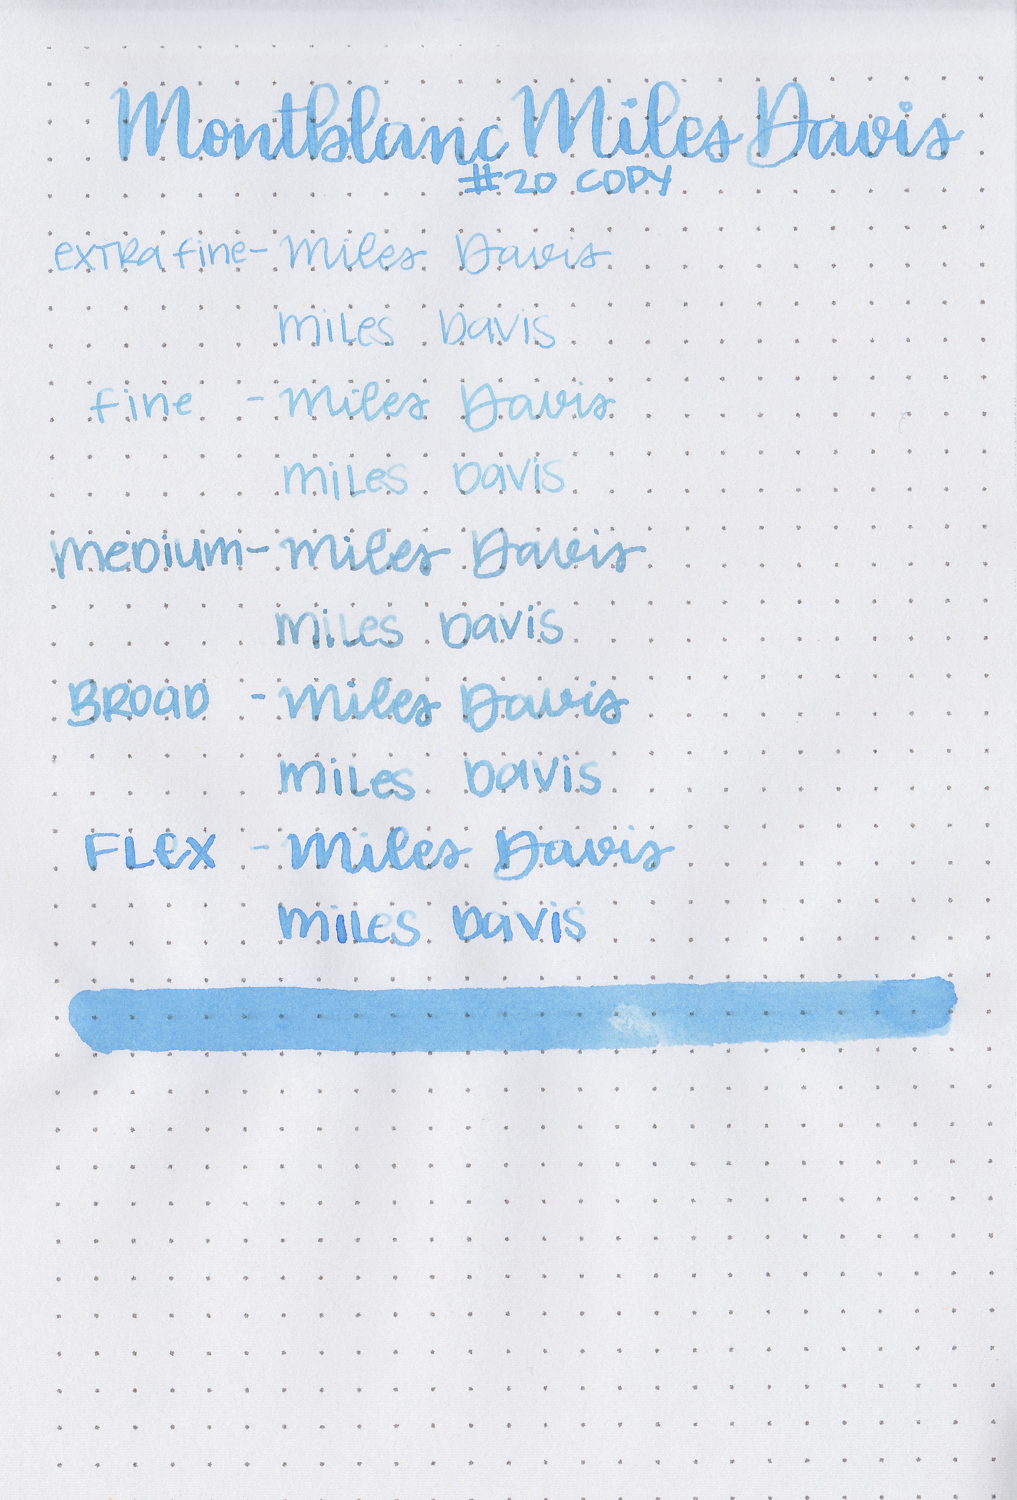 Montblanc Miles Davis
#20 COPY
Extra fine - Miles Davis
Miles Davis
fine - Miles Davis
Miles Davis
Medium - Miles Davis
Miles Davis
BROAD - Miles Davis
Miles Davis
FLEX - Miles Davis
Miles Davis